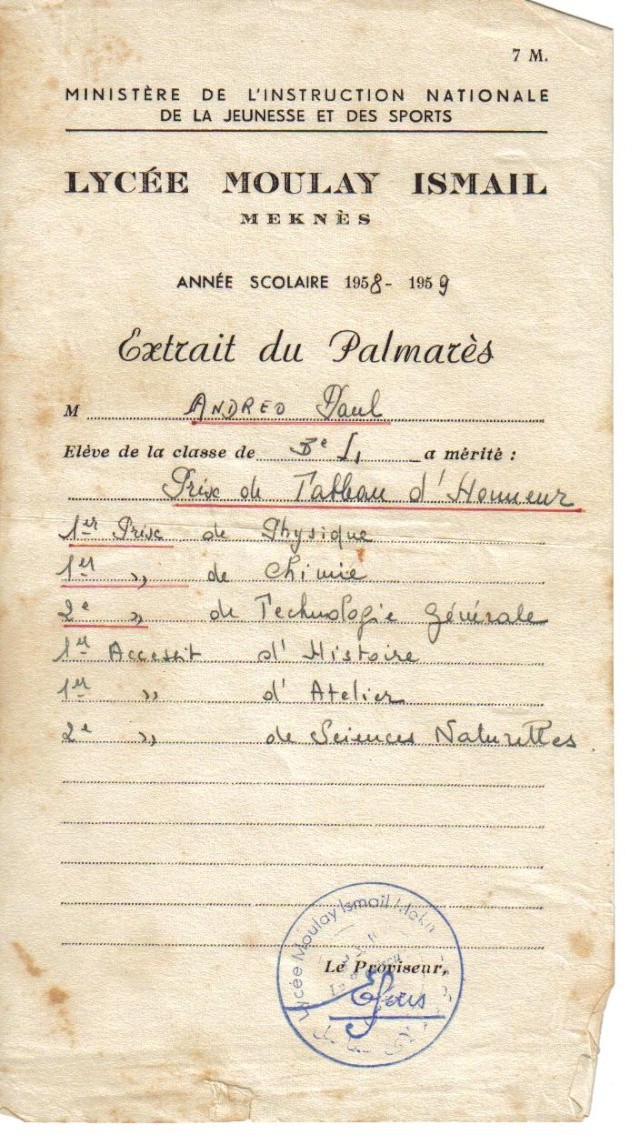 7 M.
MINISTÈRE DE L'INSTRUCTION NATIONALE
DE LA JEUNESSE ET DES SPORTS
LYCÉE MOULAY ISMAIL
MEKNÈS
ANNÉE SCOLAIRE 1958-1959
Extrait du Palmarès
M ANDREO Paul
Elève de la classe de 3e I1 a mérité :
Prix de Tableau d'Honneur
1er Prix de Physique
1er " de Chimie
2e " de Technologie Générale
1er Accessit d'Histoire
1er " d'Atelier
2e " de Sciences Naturelles
Lycée Moulay Ismail
Le Proviseur,